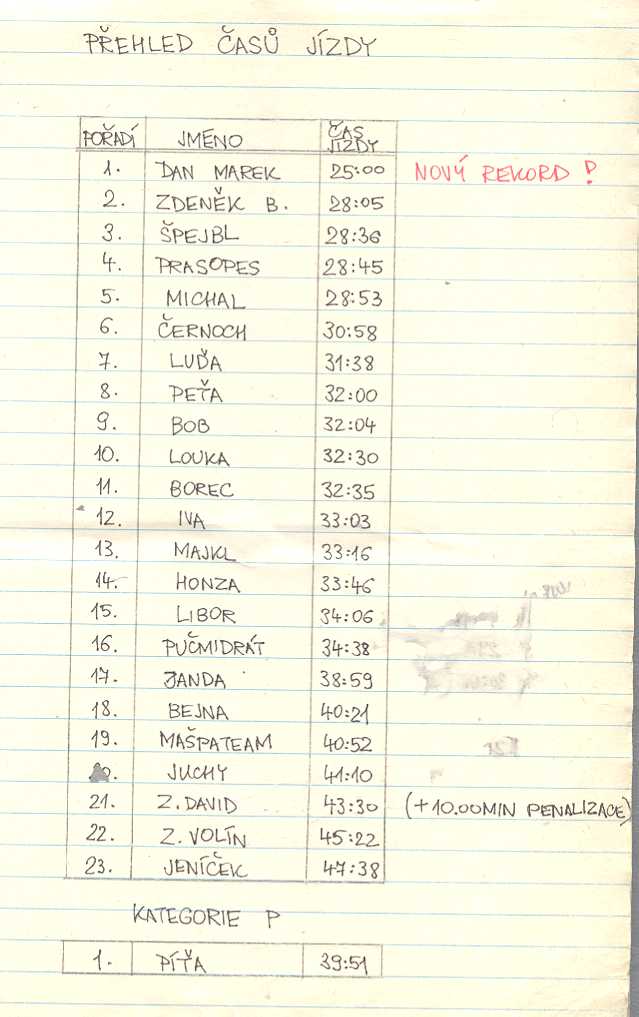 PŘEHLED ČASŮ JÍZDY
POŘADÍ JMÉNO ČAS JÍZDY
1. DAN MAREK 25:00 NOVÝ REKORD !
2. ZDENĚK B. 28:05
3. ŠPEJBL 28:36
4. PRASOPES 28:45
5. MICHAL 28:53
6. ČERNOCH 30:58
7. LUĎA 31:38
8. PEŤA 32:00
9. BOB 32:04
10. LOUKA 32:30
11. BOREC 32:35
12. IVA 33:03
13. MAJKL 33:16
14. HONZA 33:46
15. LIBOR 34:06
16. PUČMIDRÁT 34:38
17. JANDA 38:59
18. BEJNA 40:21
19. MAŠPATEAM 40:52
JUCHY 41:10
21. Z. DAVID 43:30 (+10.00MIN PENALIZACE)
22. Z. VOLÍN 45:22
23. JENÍČEK 47:38
KATEGORIE P
1. PÍŤA 39:51